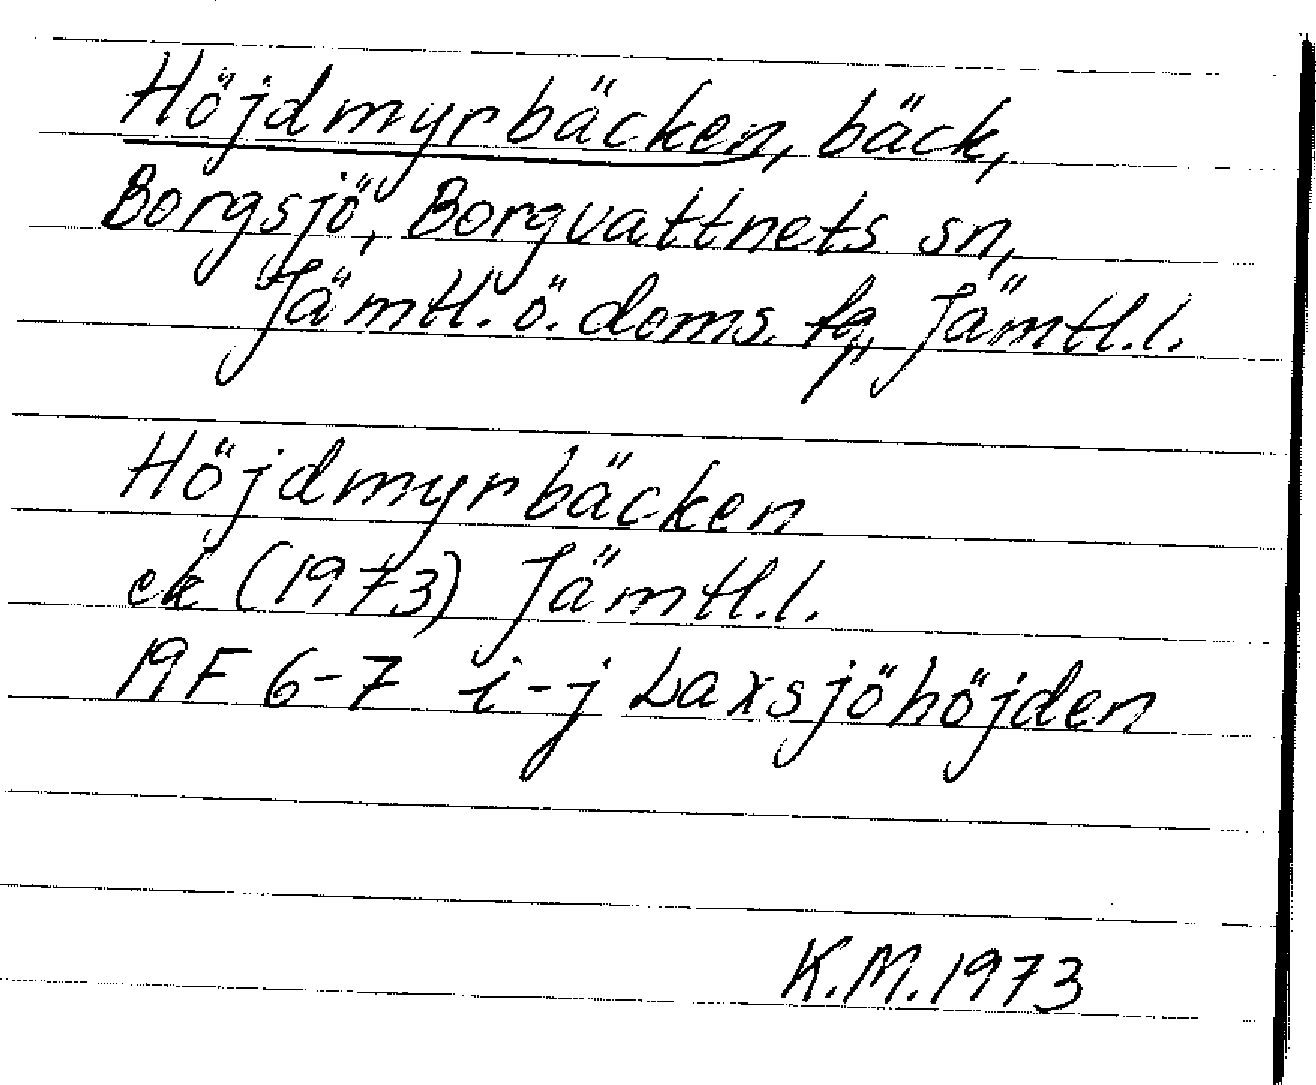 Höjdmyrbäcken, bäck,
Borgsjö, Borgvattnets sn,
Jämtl. ö. doms. fg, Jämtl. l.
Höjdmyrbäcken
ek (1973) Jämtl. l.
19F 6-7 i-j Laxsjöhöjden
K.M. 1973